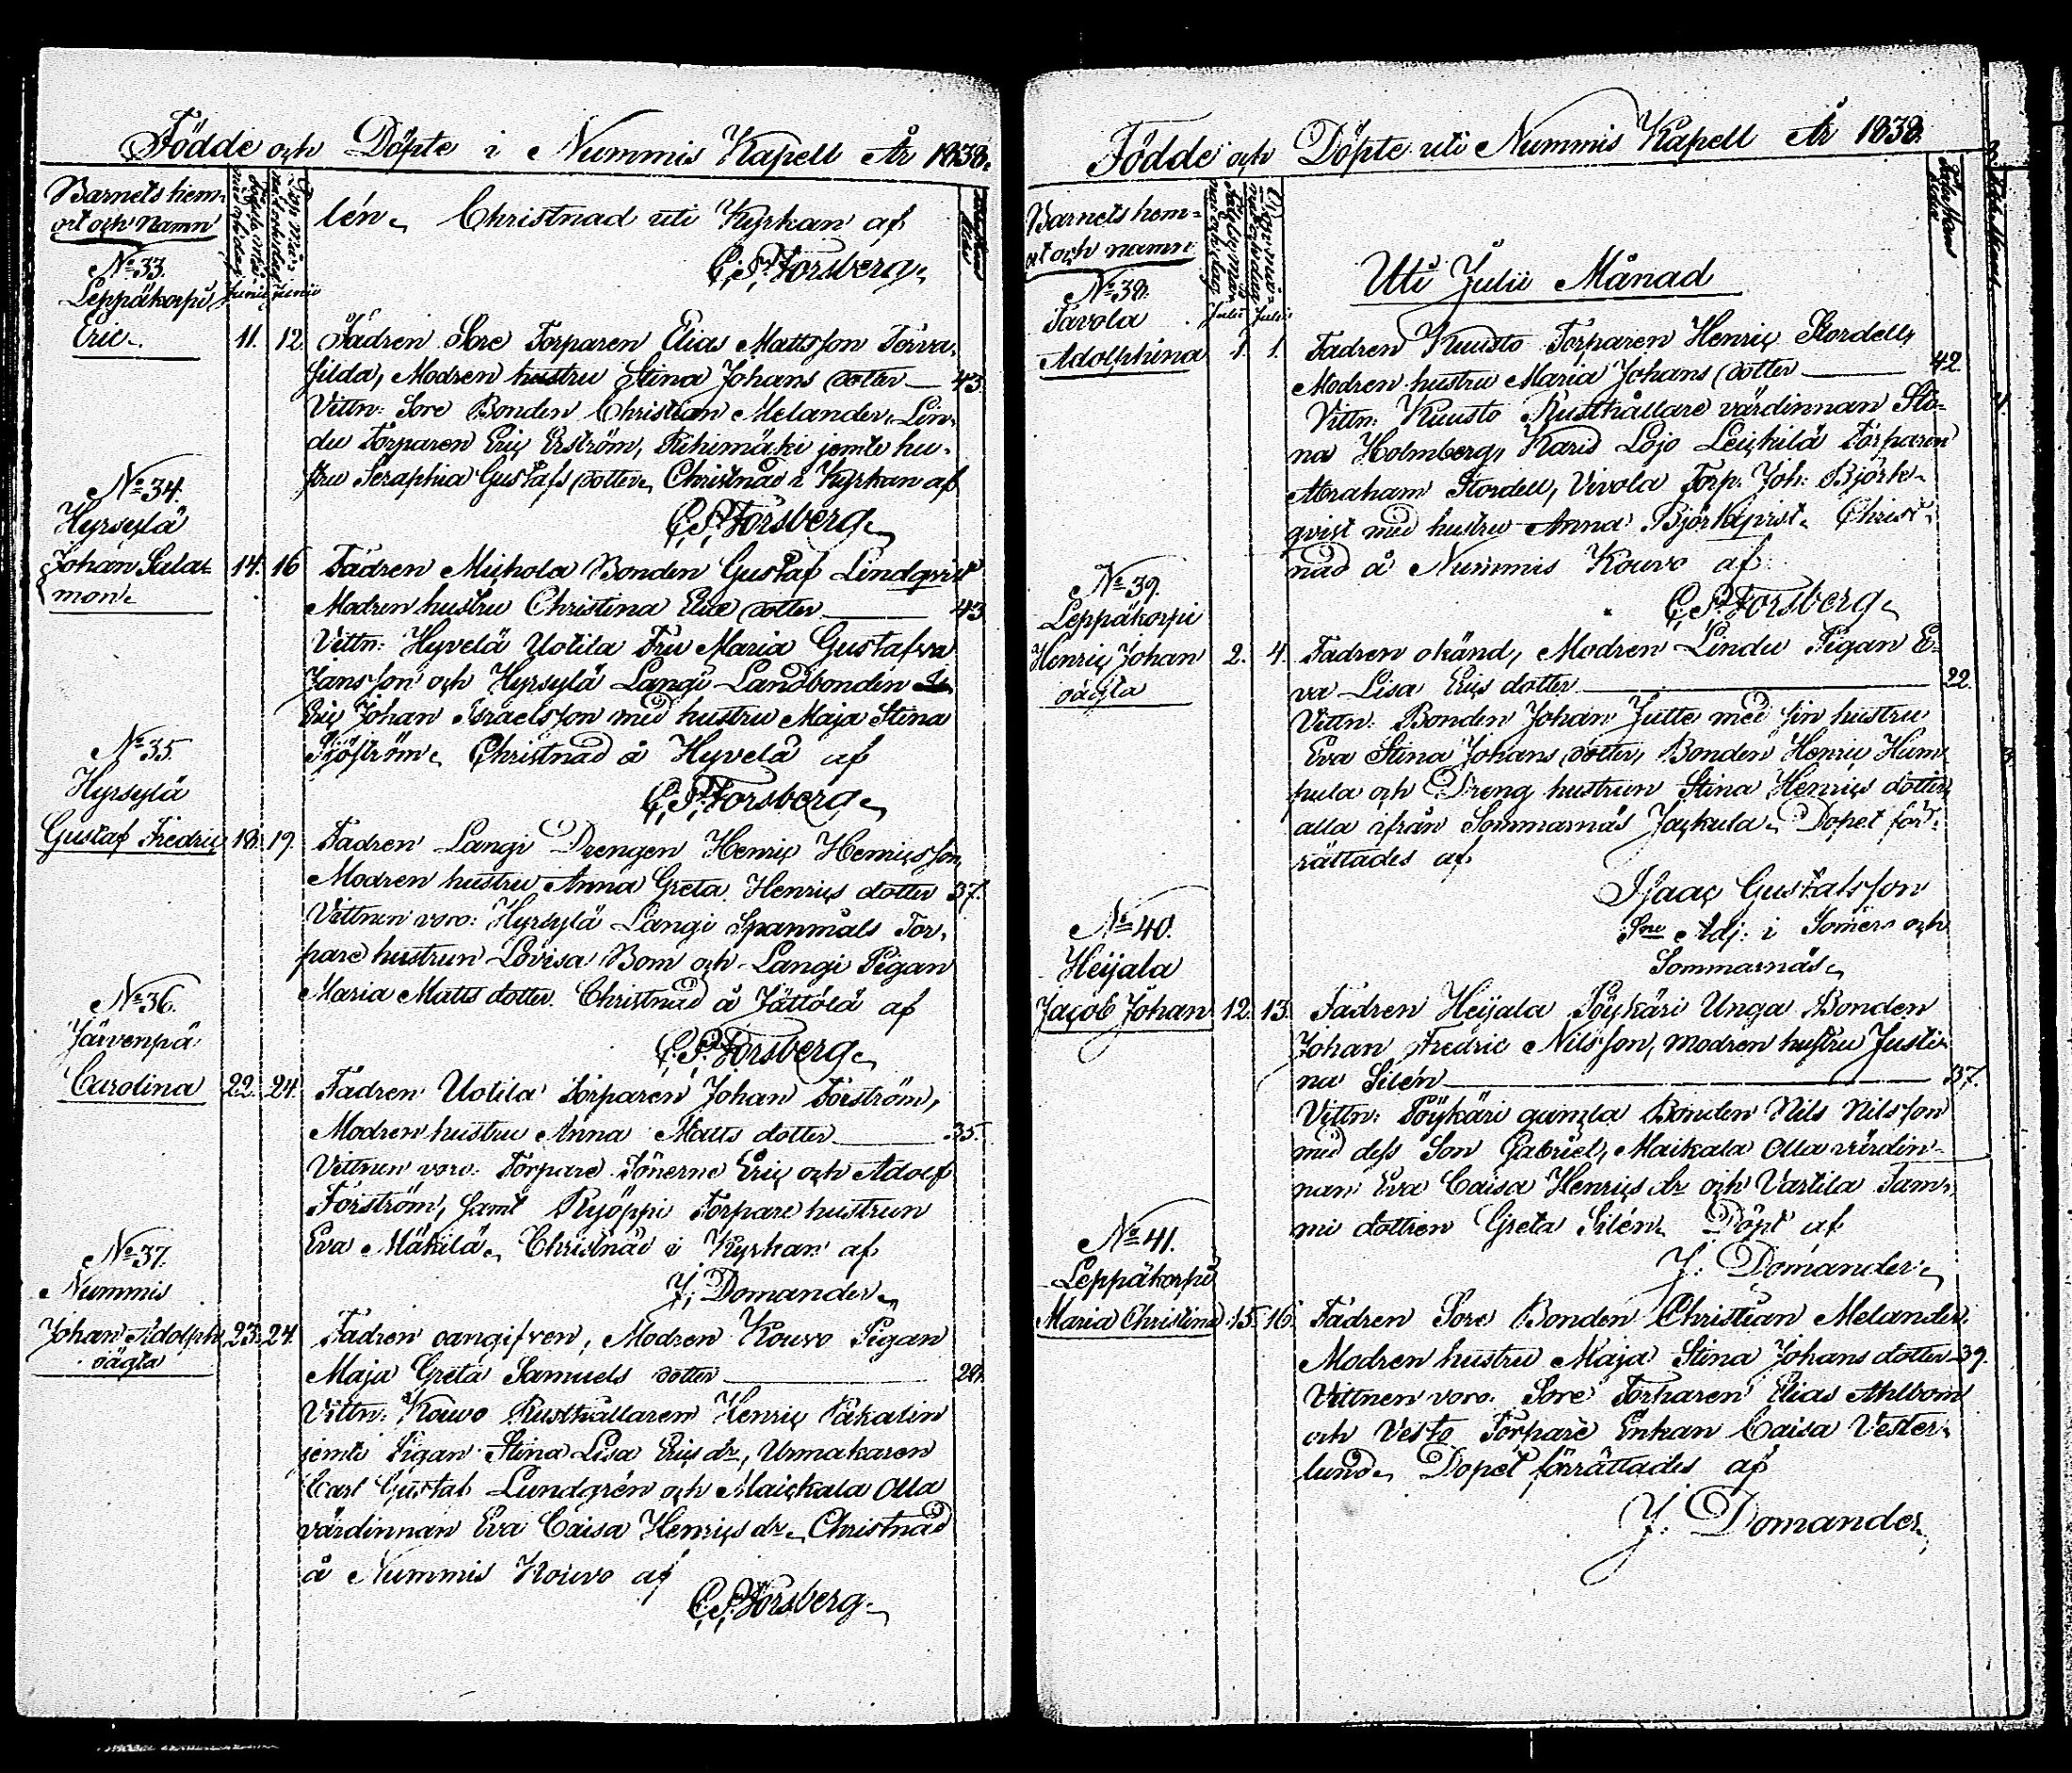 Födde och Döpte i Nummis Kapell År 1838.
Barnets hem-
ort och Namn
lén. Christnad uti Kyrkan af
C. P. Forsberg.
No 33.
Leppäkorpi
Junii Junii
Eric. 11. 12 Fadren Sore Torparen Elias Mattsson Torva,
Modren hustru Stina Johans dotter 43.
Vittn: Sore Bonden Christian Melander, Lin-
du Torparen Eric Erström, Rihimäki jemte hu-
stru Seraphia Gustafs dotter. Christnad i Kyrkan af
C. P. Forsberg.
No 34.
Hyrsylä
Johan Sala-
mon. 14. 16 Fadren Mickola Bonden Gustaf Lindqvist
Modren hustru Christina Eliæ dotter 43
Vittn: Hyvelä Uotila Fru Maria Gustafva
Jansson och Hyrsylä Langi Landbonden
Eric Johan Israelsson med hustru Maja Stina
Sjöström. Christnad å Hyvelä af
C. P. Forsberg.
No 35.
Hyrsylä
Gustaf Fredric 18. 19. Fadren Langi Drengen Henric Henricsson,
Modren hustru Anna Greta Henrics dotter 37.
Vittnen voro: Hyrsylä Langi Spanmåls Tor-
pare hustrun Lovisa Bom och Langi Pigan
Maria Matts dotter. Christnad å Jättölä af
C. P. Forsberg.
No 36.
Järvenpä
Carolina 22. 24. Fadren Uotila Torparen Johan Forström,
Modren hustru Anna Matts dotter 35.
Vittnen voro: Torpare Sönerne Eric och Adolf
Forström, samt Ryöppi Torpare hustrun
Eva Mäkilä. Christnad i Kyrkan af
J. Domander.
No 37.
Nummis
Johan Adolph 23. 24. Fadren oangifven, Modren Kouvo Pigan
oägta
Maja Greta Samuels dotter 28.
Vittn: Kouvo Rusthållaren Henric Påkalin
jemte Pigan Stina Lisa Erics dr, Urmakaren
Carl Gustaf Lundgrén och Maickala Olla
värdinnan Eva Caisa Henrics dr. Christnad
å Nummis Kouvo af
C. P. Forsberg.
Födde och Döpte uti Nummis Kapell År 1838.
Barnets hem-
ort och namn
Uti Julii Månad
No 38.
Tavola
Julii Julii
Adolphina 1. 1. Fadren Kuusto Torparen Henric Stordell,
Modren hustru Maria Johans dotter 42.
Vittn: Kuusto Rusthållare värdinnan Sto-
na Holmberg, Karis Lojo Leickilä Torparen
Abraham Stordell, Vivola Torp. Joh: Björk-
qvist med hustru Anna Björkqvist. Christ-
nad å Nummis Kouvo af
C. P. Forsberg.
No 39.
Leppäkorpi
Henric Johan 2. 4. Fadren okänd, Modren Lindu Pigan E-
oägta
va Lisa Erics dotter 22.
Vittn: Bonden Johan Jutte med sin hustru
Eva Stina Johans dotter, Bonden Henric Hum-
pula och Dreng hustrun Stina Henrics dotter
alla ifrån Sommarnäs Jackula. Dopet för-
rättades af
Isaac Gustafsson
Sne Adj: i Somero och
Sommarnäs.
No 40.
Heijala
Jacob Johan 12. 13. Fadren Heijala Töykäri Unga Bonden
Johan Fredric Nilsson, modren hustru Justi-
na Silén 37.
Vittn: Töykäri gamla Bonden Nils Nilsson
med dess Son Gabriel, Maikala Olla värdin-
nan Eva Caisa Henrics dr och Vartila Tam-
mi dottren Greta Silén. Döpt af
J. Domander.
No 41.
Leppäkorpi
Maria Christina 15. 16. Fadren Sore Bonden Christian Melander.
Modren hustru Maja Stina Johans dotter 39.
Vittnen voro: Sore Torparen Elias Ahlbom
och Vesto Torpare Enkan Caisa Vester-
lund. Dopet förrättades af
J. Domander